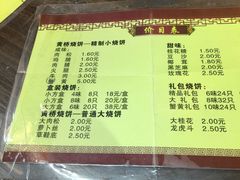 价目表
黄桥烧饼—精制小烧饼
咸味:
肉松 1.50元
鸡
火腿 2.00元
牛肉 3.00元
蟹黄 5.00元
盒装烧饼:
小方盒 4味 8只 18元/盒
小方盒 6味 12只 24元/盒
大方盒 6味 16只 38元/盒
黄桥烧饼—普通大烧饼
大肉松 2.00元
萝卜丝 2.00元
草鞋底 2.50元
甜味:
桂花糖 1.50元
豆沙 2.00元
椰蓉 2.00元
黑芝麻 2.00元
玫瑰花 2.50元
礼包烧饼:
精品礼包 24只
大礼包 32只
小礼包 16只
大桂花 2.00元
龙虎斗 2.50元